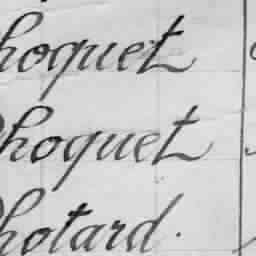 hoquet
hoquet
hotard.